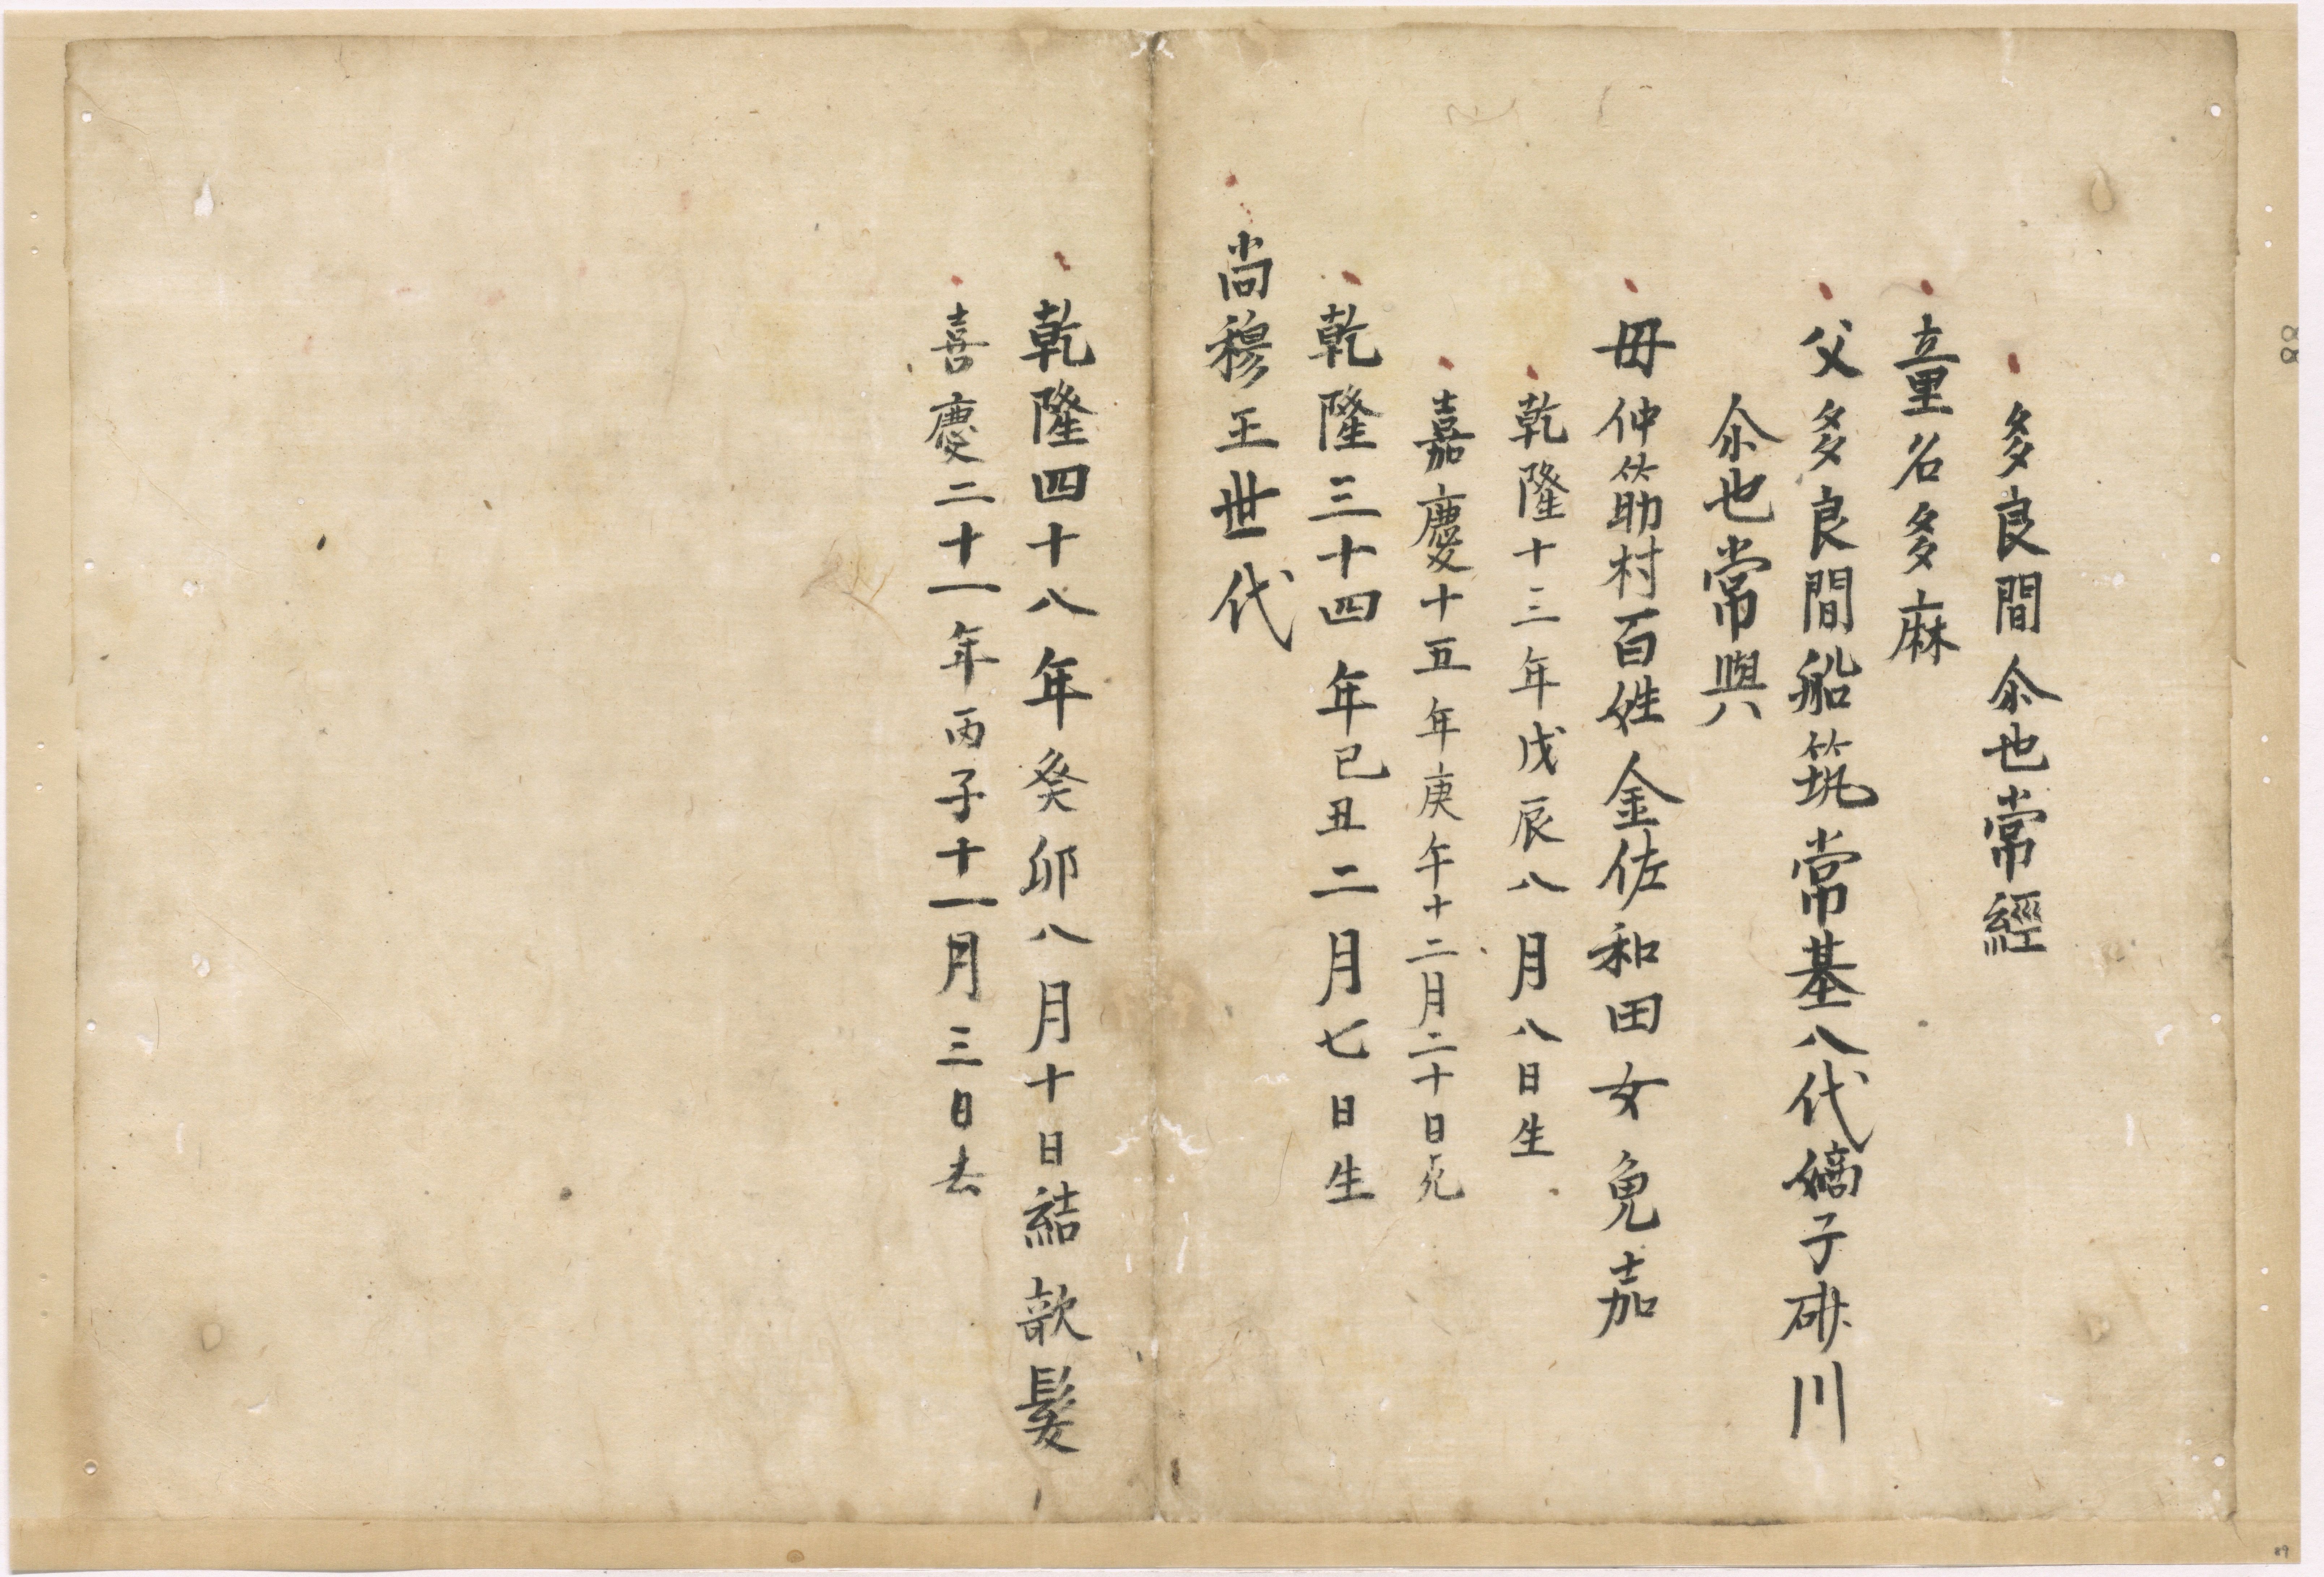 多良間尒也常經
童名多麻
父多良間船筑常基八代嫡子砂川
尒也常與
母仲筋村百姓金佐和田女免嘉
乾隆十三年戊辰八月八日生
嘉慶十五年庚午十二月二十日死
乾隆三十四年己丑二月七日生
尚穆王世代
乾隆四十八年癸卯八月十日結歌髮
喜慶二十一年丙子十一月三日去
88
89